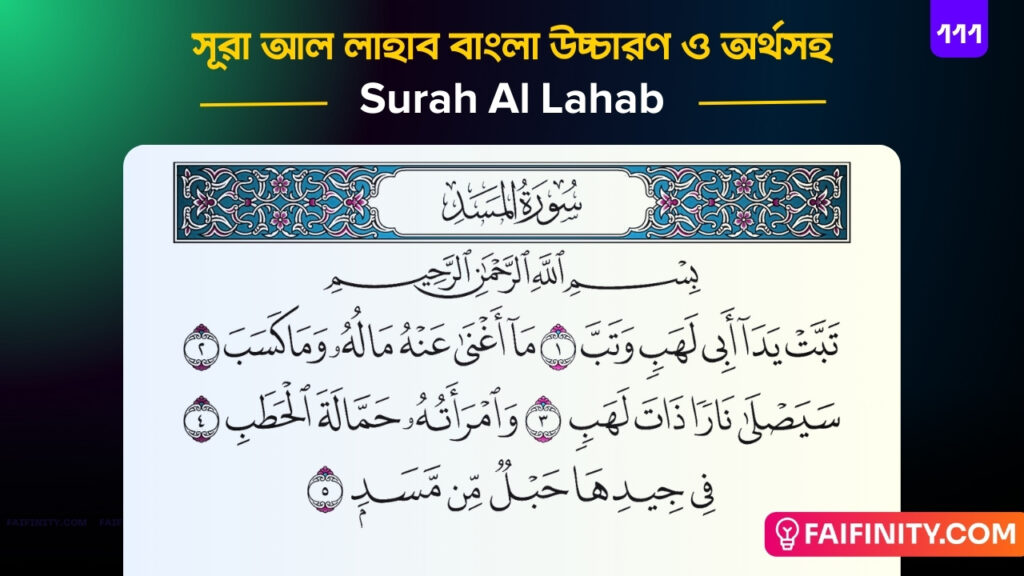 সূরা আল লাহাব বাংলা উচ্চারণ ও অর্থসহ
111
Surah Al Lahab
سُورَةُ المَسَدِ
بِسْمِ ٱللَّهِ ٱلرَّحْمَٰنِ ٱلرَّحِيمِ
تَبَّتْ يَدَآ أَبِى لَهَبٍ وَتَبَّ ١ مَآ أَغْنَىٰ عَنْهُ مَالُهُۥ وَمَا كَسَبَ ٢
سَيَصْلَىٰ نَارًا ذَاتَ لَهَبٍ ٣ وَٱمْرَأَتُهُۥ حَمَّالَةَ ٱلْحَطَبِ ٤
فِى جِيدِهَا حَبْلٌ مِّن مَّسَدٍۭ ٥
FAIFINITY.COM FAIF
FAIFINITY.COM